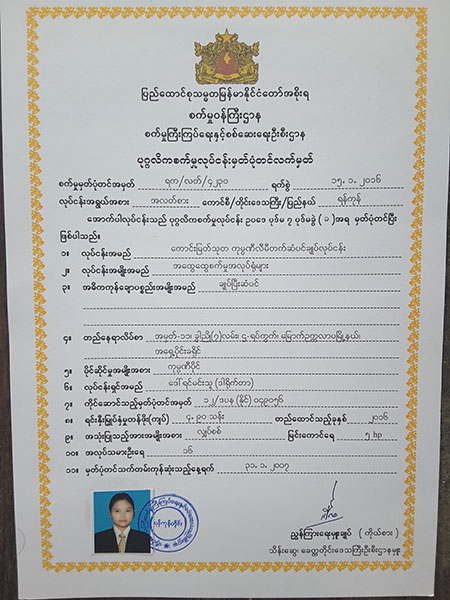 ပြည်ထောင်စုသမ္မတမြန်မာနိုင်ငံတော်အစိုးရ
စက်မှုဝန်ကြီးဌာန
စက်မှုကြီးကြပ်ရေးနှင့်စစ်ဆေးရေးဦးစီးဌာန
ပုဂ္ဂလိကစက်မှုလုပ်ငန်းမှတ်ပုံတင်လက်မှတ်
စက်မှုမှတ်ပုံတင်အမှတ် ရက/လတ်/၄၂၃၀ ရက်စွဲ ၁၅.၁.၂၀၁၆
လုပ်ငန်းအရွယ်အစား အလတ်စား ကောင်စီ/တိုင်းဒေသကြီး/ပြည်နယ် ရန်ကုန်
အောက်ပါလုပ်ငန်းသည် ပုဂ္ဂလိကစက်မှုလုပ်ငန်း ဥပဒေ ပုဒ်မ ၇ ပုဒ်မခွဲ (ခ) အရ မှတ်ပုံတင်ပြီး
ဖြစ်ပါသည်။
၁။ လုပ်ငန်းအမည် ကောင်းမြတ်သုတ ကုမ္ပဏီလီမိတက်ဆံပင်ချုပ်လုပ်ငန်း
၂။ လုပ်ငန်းအမျိုးအမည် အထွေထွေစက်မှုအလုပ်ရုံများ
၃။ အဓိကကုန်ချောပစ္စည်းအမျိုးအမည် ချုပ်ပြီးဆံပင်
၄။ တည်နေရာလိပ်စာ အမှတ်-၁၁၊ ခွါညို(၇)လမ်း၊ ဌ-ရပ်ကွက်၊ မြောက်ဥက္ကလာပမြို့နယ်၊
အရှေ့ပိုင်းခရိုင်
၅။ ပိုင်ဆိုင်မှုအမျိုးအစား ကုမ္ပဏီပိုင်
၆။ လုပ်ငန်းရှင်အမည် ဒေါ်ရင်မင်းသူ (ဒါရိုက်တာ)
၇။ ကိုင်ဆောင်သည့်မှတ်ပုံတင်အမှတ် ၁၂/ဒပန (နိုင်)
၈။ ရင်းနှီးမြှုပ်နှံမှုတန်ဖိုး(ကျပ်) ၄.၉၀ သန်း တည်ထောင်သည့်ခုနှစ် ၂၀၁၆
၉။ အသုံးပြုသည့်အားအမျိုးအစား လျှပ်စစ် မြင်းကောင်ရေ ၅ hp
၁၀။ အလုပ်သမားဦးရေ ၁၆
၁၁။ မှတ်ပုံတင်သက်တမ်းကုန်ဆုံးသည့်နေ့ရက် ၃၁.၁.၂၀၁၇
ညွှန်ကြားရေးမှူးချုပ် (ကိုယ်စား)
သိန်းဆွေ၊ ခေတ္တတိုင်းဒေသကြီးဦးစီးဌာနမှူး